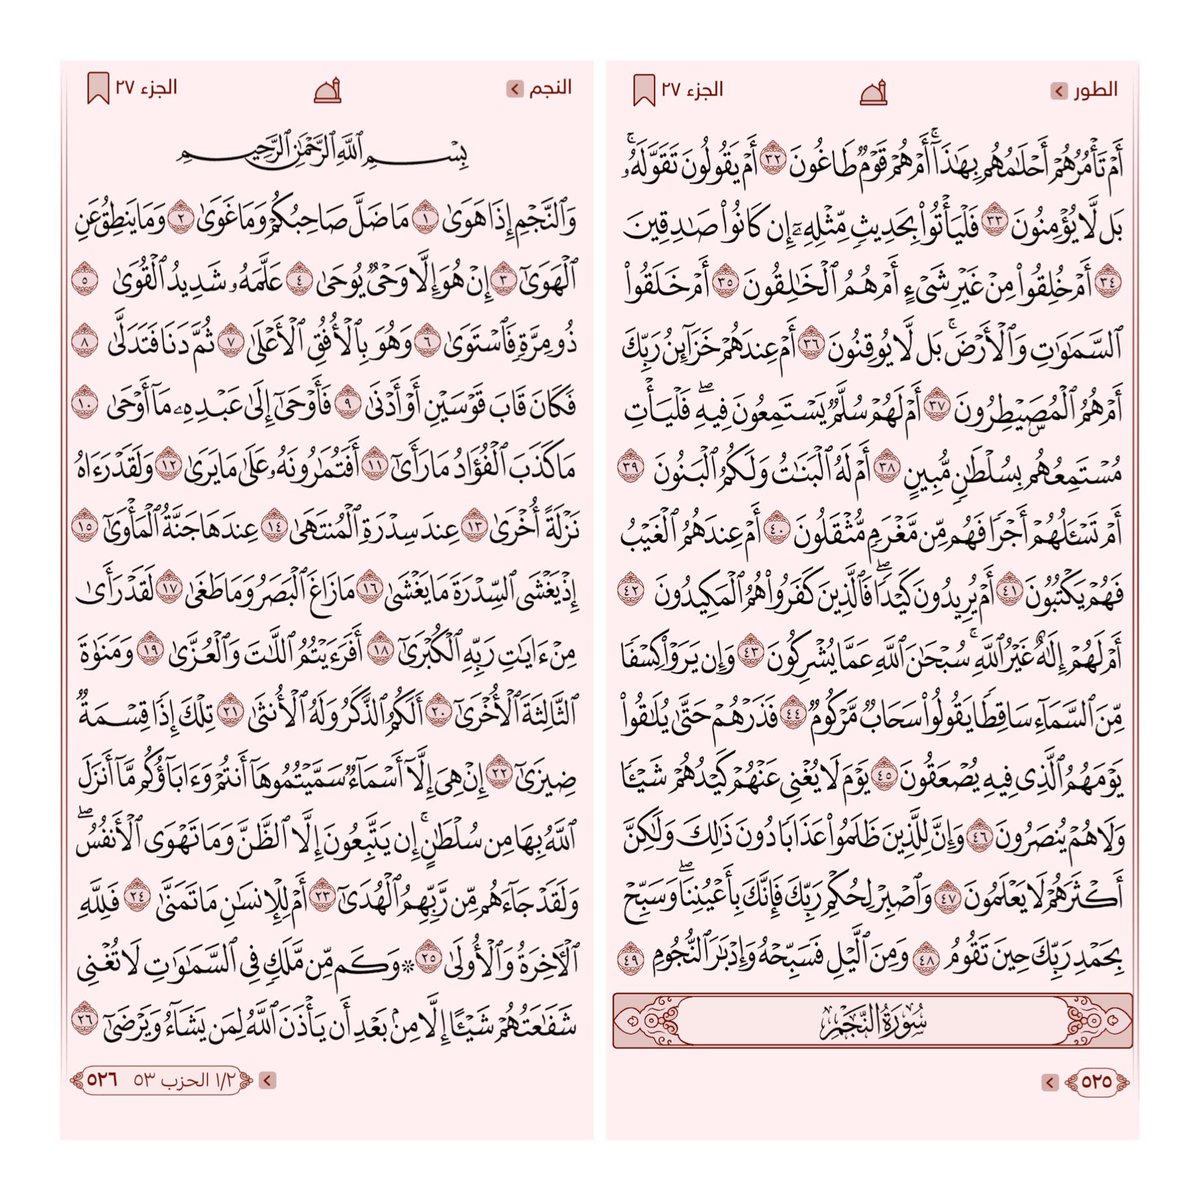 الطور
الجزء ٢٧
أَمۡ تَأۡمُرُهُمۡ أَحۡلَٰمُهُم بِهَٰذَآۚ أَمۡ هُمۡ قَوۡمٞ طَاغُونَ ٣٢ أَمۡ يَقُولُونَ تَقَوَّلَهُۥۚ
بَل لَّا يُؤۡمِنُونَ ٣٣ فَلۡيَأۡتُواْ بِحَدِيثٖ مِّثۡلِهِۦٓ إِن كَانُواْ صَٰدِقِينَ
٣٤ أَمۡ خُلِقُواْ مِنۡ غَيۡرِ شَيۡءٍ أَمۡ هُمُ ٱلۡخَٰلِقُونَ ٣٥ أَمۡ خَلَقُواْ
ٱلسَّمَٰوَٰتِ وَٱلۡأَرۡضَۚ بَل لَّا يُوقِنُونَ ٣٦ أَمۡ عِندَهُمۡ خَزَآئِنُ رَبِّكَ
أَمۡ هُمُ ٱلۡمُصَۜيۡطِرُونَ ٣٧ أَمۡ لَهُمۡ سُلَّمٞ يَسۡتَمِعُونَ فِيهِۖ فَلۡيَأۡتِ
مُسۡتَمِعُهُم بِسُلۡطَٰنٖ مُّبِينٍ ٣٨ أَمۡ لَهُ ٱلۡبَنَٰتُ وَلَكُمُ ٱلۡبَنُونَ ٣٩
أَمۡ تَسۡـَٔلُهُمۡ أَجۡرٗا فَهُم مِّن مَّغۡرَمٖ مُّثۡقَلُونَ ٤٠ أَمۡ عِندَهُمُ ٱلۡغَيۡبُ
فَهُمۡ يَكۡتُبُونَ ٤١ أَمۡ يُرِيدُونَ كَيۡدٗاۖ فَٱلَّذِينَ كَفَرُواْ هُمُ ٱلۡمَكِيدُونَ ٤٢
أَمۡ لَهُمۡ إِلَٰهٌ غَيۡرُ ٱللَّهِۚ سُبۡحَٰنَ ٱللَّهِ عَمَّا يُشۡرِكُونَ ٤٣ وَإِن يَرَوۡاْ كِسۡفٗا
مِّنَ ٱلسَّمَآءِ سَاقِطٗا يَقُولُواْ سَحَابٞ مَّرۡكُومٞ ٤٤ فَذَرۡهُمۡ حَتَّىٰ يُلَٰقُواْ
يَوۡمَهُمُ ٱلَّذِي فِيهِ يُصۡعَقُونَ ٤٥ يَوۡمَ لَا يُغۡنِي عَنۡهُمۡ كَيۡدُهُمۡ شَيۡـٔٗا
وَلَا هُمۡ يُنصَرُونَ ٤٦ وَإِنَّ لِلَّذِينَ ظَلَمُواْ عَذَابٗا دُونَ ذَٰلِكَ وَلَٰكِنَّ
أَكۡثَرَهُمۡ لَا يَعۡلَمُونَ ٤٧ وَٱصۡبِرۡ لِحُكۡمِ رَبِّكَ فَإِنَّكَ بِأَعۡيُنِنَاۖ وَسَبِّحۡ
بِحَمۡدِ رَبِّكَ حِينَ تَقُومُ ٤٨ وَمِنَ ٱلَّيۡلِ فَسَبِّحۡهُ وَإِدۡبَٰرَ ٱلنُّجُومِ ٤٩
سُورَةُ النَّجۡمِ
٥٢٥
النجم
الجزء ٢٧
بِسۡمِ ٱللَّهِ ٱلرَّحۡمَٰنِ ٱلرَّحِيمِ
وَٱلنَّجۡمِ إِذَا هَوَىٰ ١ مَا ضَلَّ صَاحِبُكُمۡ وَمَا غَوَىٰ ٢ وَمَا يَنطِقُ عَنِ
ٱلۡهَوَىٰٓ ٣ إِنۡ هُوَ إِلَّا وَحۡيٞ يُوحَىٰ ٤ عَلَّمَهُۥ شَدِيدُ ٱلۡقُوَىٰ ٥
ذُو مِرَّةٖ فَٱسۡتَوَىٰ ٦ وَهُوَ بِٱلۡأُفُقِ ٱلۡأَعۡلَىٰ ٧ ثُمَّ دَنَا فَتَدَلَّىٰ ٨
فَكَانَ قَابَ قَوۡسَيۡنِ أَوۡ أَدۡنَىٰ ٩ فَأَوۡحَىٰٓ إِلَىٰ عَبۡدِهِۦ مَآ أَوۡحَىٰ ١٠
مَا كَذَبَ ٱلۡفُؤَادُ مَا رَأَىٰٓ ١١ أَفَتُمَٰرُونَهُۥ عَلَىٰ مَا يَرَىٰ ١٢ وَلَقَدۡ رَءَاهُ
نَزۡلَةً أُخۡرَىٰ ١٣ عِندَ سِدۡرَةِ ٱلۡمُنتَهَىٰ ١٤ عِندَهَا جَنَّةُ ٱلۡمَأۡوَىٰٓ ١٥
إِذۡ يَغۡشَى ٱلسِّدۡرَةَ مَا يَغۡشَىٰ ١٦ مَا زَاغَ ٱلۡبَصَرُ وَمَا طَغَىٰ ١٧ لَقَدۡ رَأَىٰ
مِنۡ ءَايَٰتِ رَبِّهِ ٱلۡكُبۡرَىٰٓ ١٨ أَفَرَءَيۡتُمُ ٱللَّٰتَ وَٱلۡعُزَّىٰ ١٩ وَمَنَوٰةَ
ٱلثَّالِثَةَ ٱلۡأُخۡرَىٰٓ ٢٠ أَلَكُمُ ٱلذَّكَرُ وَلَهُ ٱلۡأُنثَىٰ ٢١ تِلۡكَ إِذٗا قِسۡمَةٞ
ضِيزَىٰٓ ٢٢ إِنۡ هِيَ إِلَّآ أَسۡمَآءٞ سَمَّيۡتُمُوهَآ أَنتُمۡ وَءَابَآؤُكُم مَّآ أَنزَلَ
ٱللَّهُ بِهَا مِن سُلۡطَٰنٍۚ إِن يَتَّبِعُونَ إِلَّا ٱلظَّنَّ وَمَا تَهۡوَى ٱلۡأَنفُسُۖ
وَلَقَدۡ جَآءَهُم مِّن رَّبِّهِمُ ٱلۡهُدَىٰٓ ٢٣ أَمۡ لِلۡإِنسَٰنِ مَا تَمَنَّىٰ ٢٤ فَلِلَّهِ
ٱلۡأٓخِرَةُ وَٱلۡأُولَىٰ ٢٥ ۞ وَكَم مِّن مَّلَكٖ فِي ٱلسَّمَٰوَٰتِ لَا تُغۡنِي
شَفَٰعَتُهُمۡ شَيۡـًٔا إِلَّا مِنۢ بَعۡدِ أَن يَأۡذَنَ ٱللَّهُ لِمَن يَشَآءُ وَيَرۡضَىٰٓ ٢٦
١/٢ الحزب ٥٣
٥٢٦